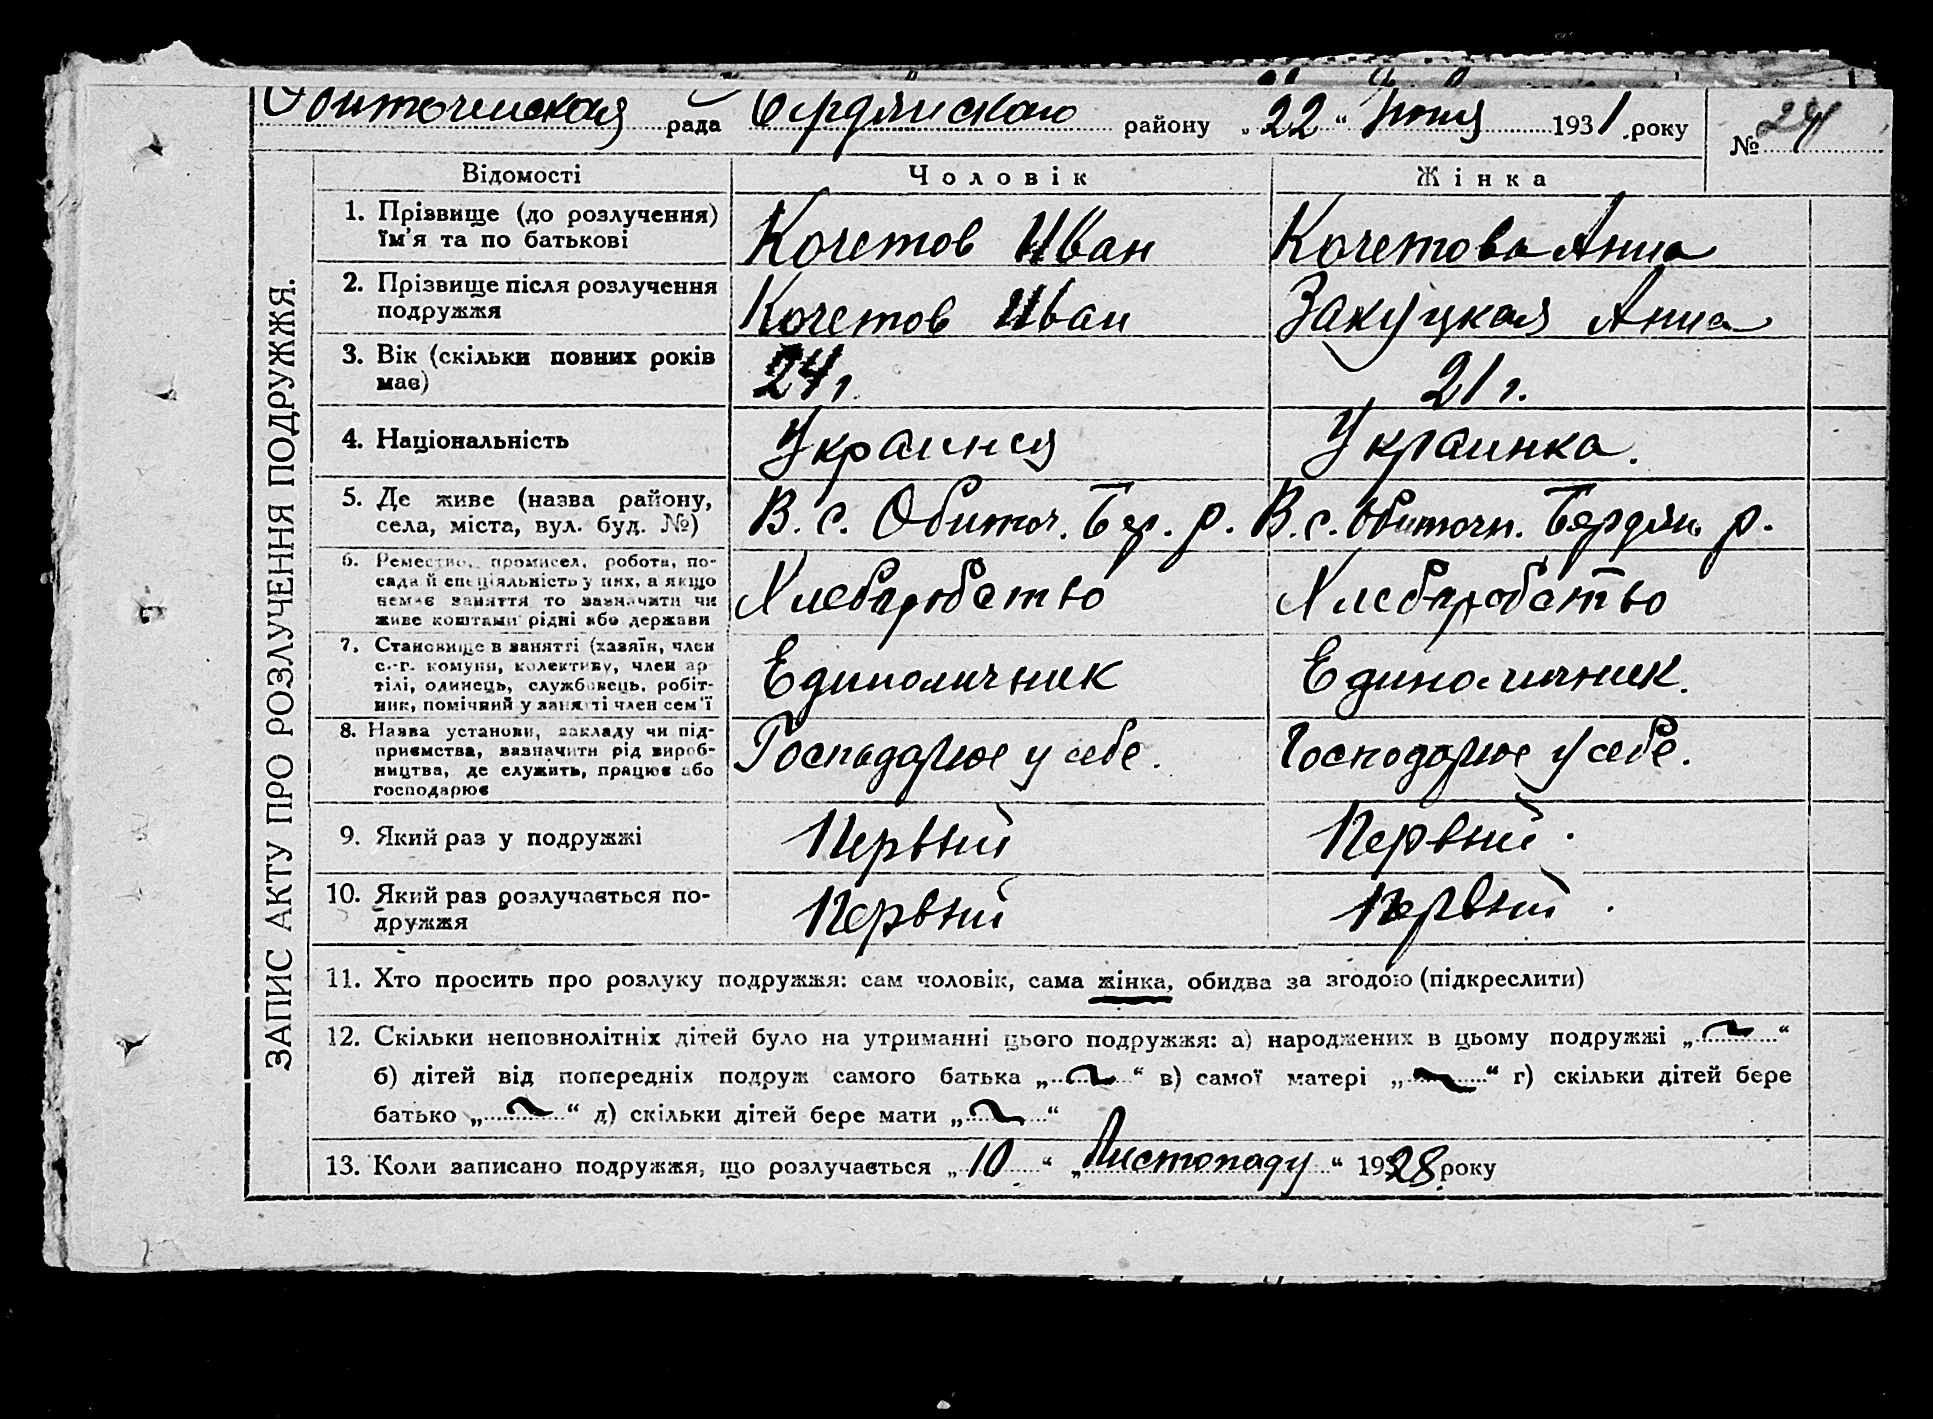 Обиточенская рада Бердянскаго району „22“ Июня 1931 року № 24
ЗАПИС АКТУ ПРО РОЗЛУЧЕННЯ ПОДРУЖЖЯ.
Відомості Чоловік Жінка
1. Прізвище (до розлучення) їм'я та по батькові Кочетов Иван Кочетова Анна
2. Прізвище після розлучення подружжя Кочетов Иван Закуцкая Анна
3. Вік (скільки повних років має) 24 г. 21 г.
4. Національність Украинец Украинка.
5. Де живе (назва району, села, міста, вул. буд. №) В. с. Обиточ. Бер. р. В. с. Обиточн. Бердян. р.
6. Ремество, промисел, робота, посада й спеціяльність у них, а якщо немає заняття то зазначити чи живе коштами рідні або держави Хлебаробство Хлебаробство
7. Становище в занятті (хазяїн, член с.-г. комуни, колективу, член артілі, одинець, службовець, робітник, помічний у занятті член сем'ї Единоличник Единоличник.
8. Назва установи, закладу чи підприємства, зазначити рід виробництва, де служить, працює або господарює Господарює у себе. Господарює у себе.
9. Який раз у подружжі Первый Первый.
10. Який раз розлучається подружжя Первый Первый.
11. Хто просить про розлуку подружжя: сам чоловік, сама жінка, обидва за згодою (підкреслити)
12. Скільки неповнолітніх дітей було на утриманні цього подружжя: а) народжених в цьому подружжі „ “
б) дітей від попередніх подруж самого батька „ “ в) самої матері „ “ г) скільки дітей бере
батько „ “ д) скільки дітей бере мати „ “
13. Коли записано подружжя, що розлучається „10“ „Листопаду“ 1928 року